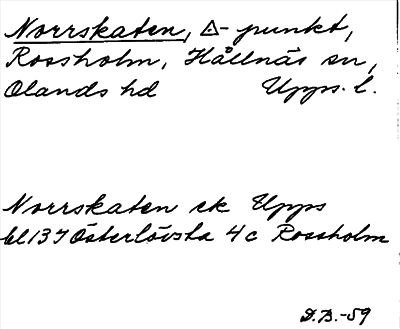 Norrskaten, △-punkt,
Rossholm, Hållnäs sn,
Olands hd Upps. l.
Norrskaten ek Upps
bl 13 I Österlövsta 4c Rossholm
D.B.-59